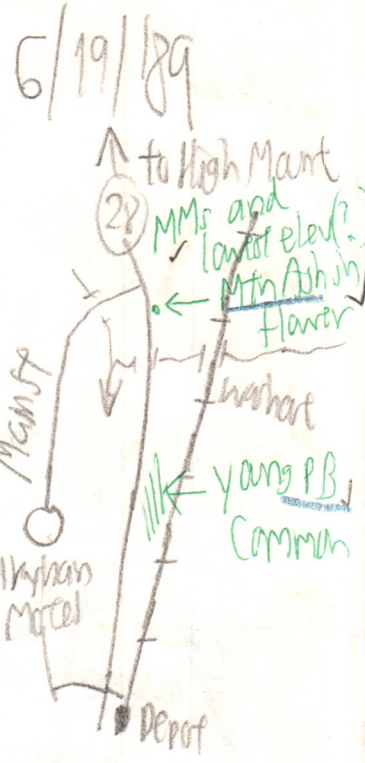 6/19/89
to High Mount
28
MMs and
lowest elev?
Mtn Ash in
flower
Main St
young PB
Common
Motel
Depot